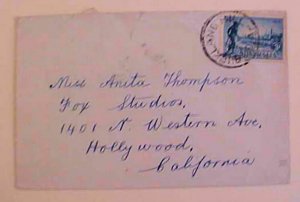 Miss Anita Thompson
Fox Studios,
1401 N. Western Ave,
Hollywood,
California